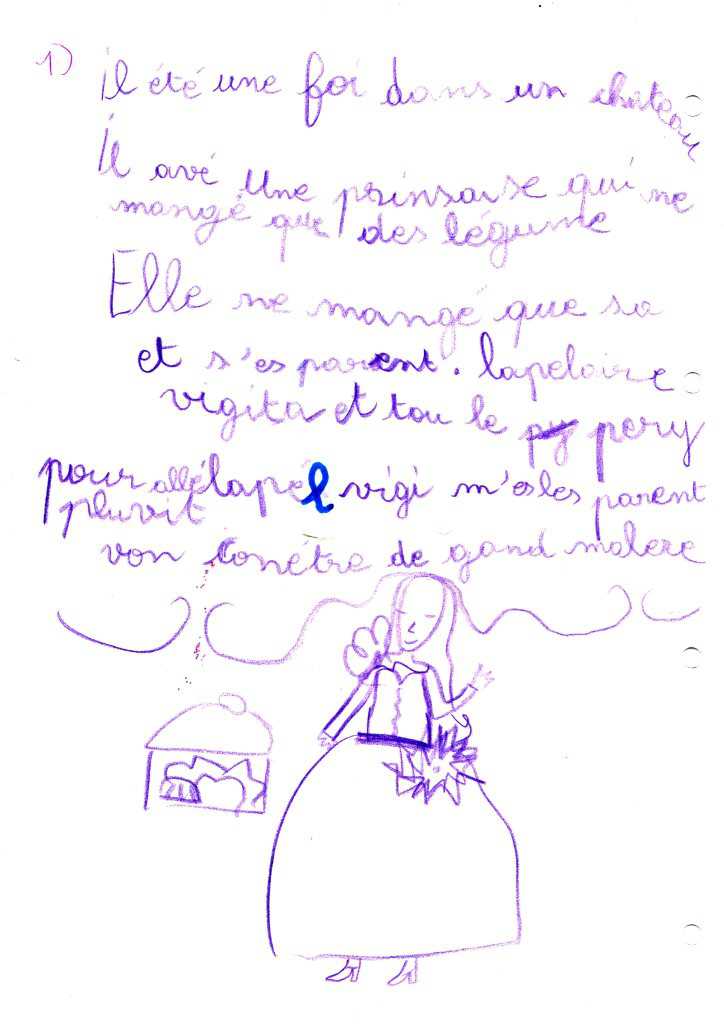 1)
il été une foi dans un château
Il avé une prinsaise qui ne
mangé que des légume
Elle ne mangé que sa
et s'es parent. lapelaire
vigita et tou le pery
pour allé lapél vigi m'es les parent
pluvit
von conétre de gand malere